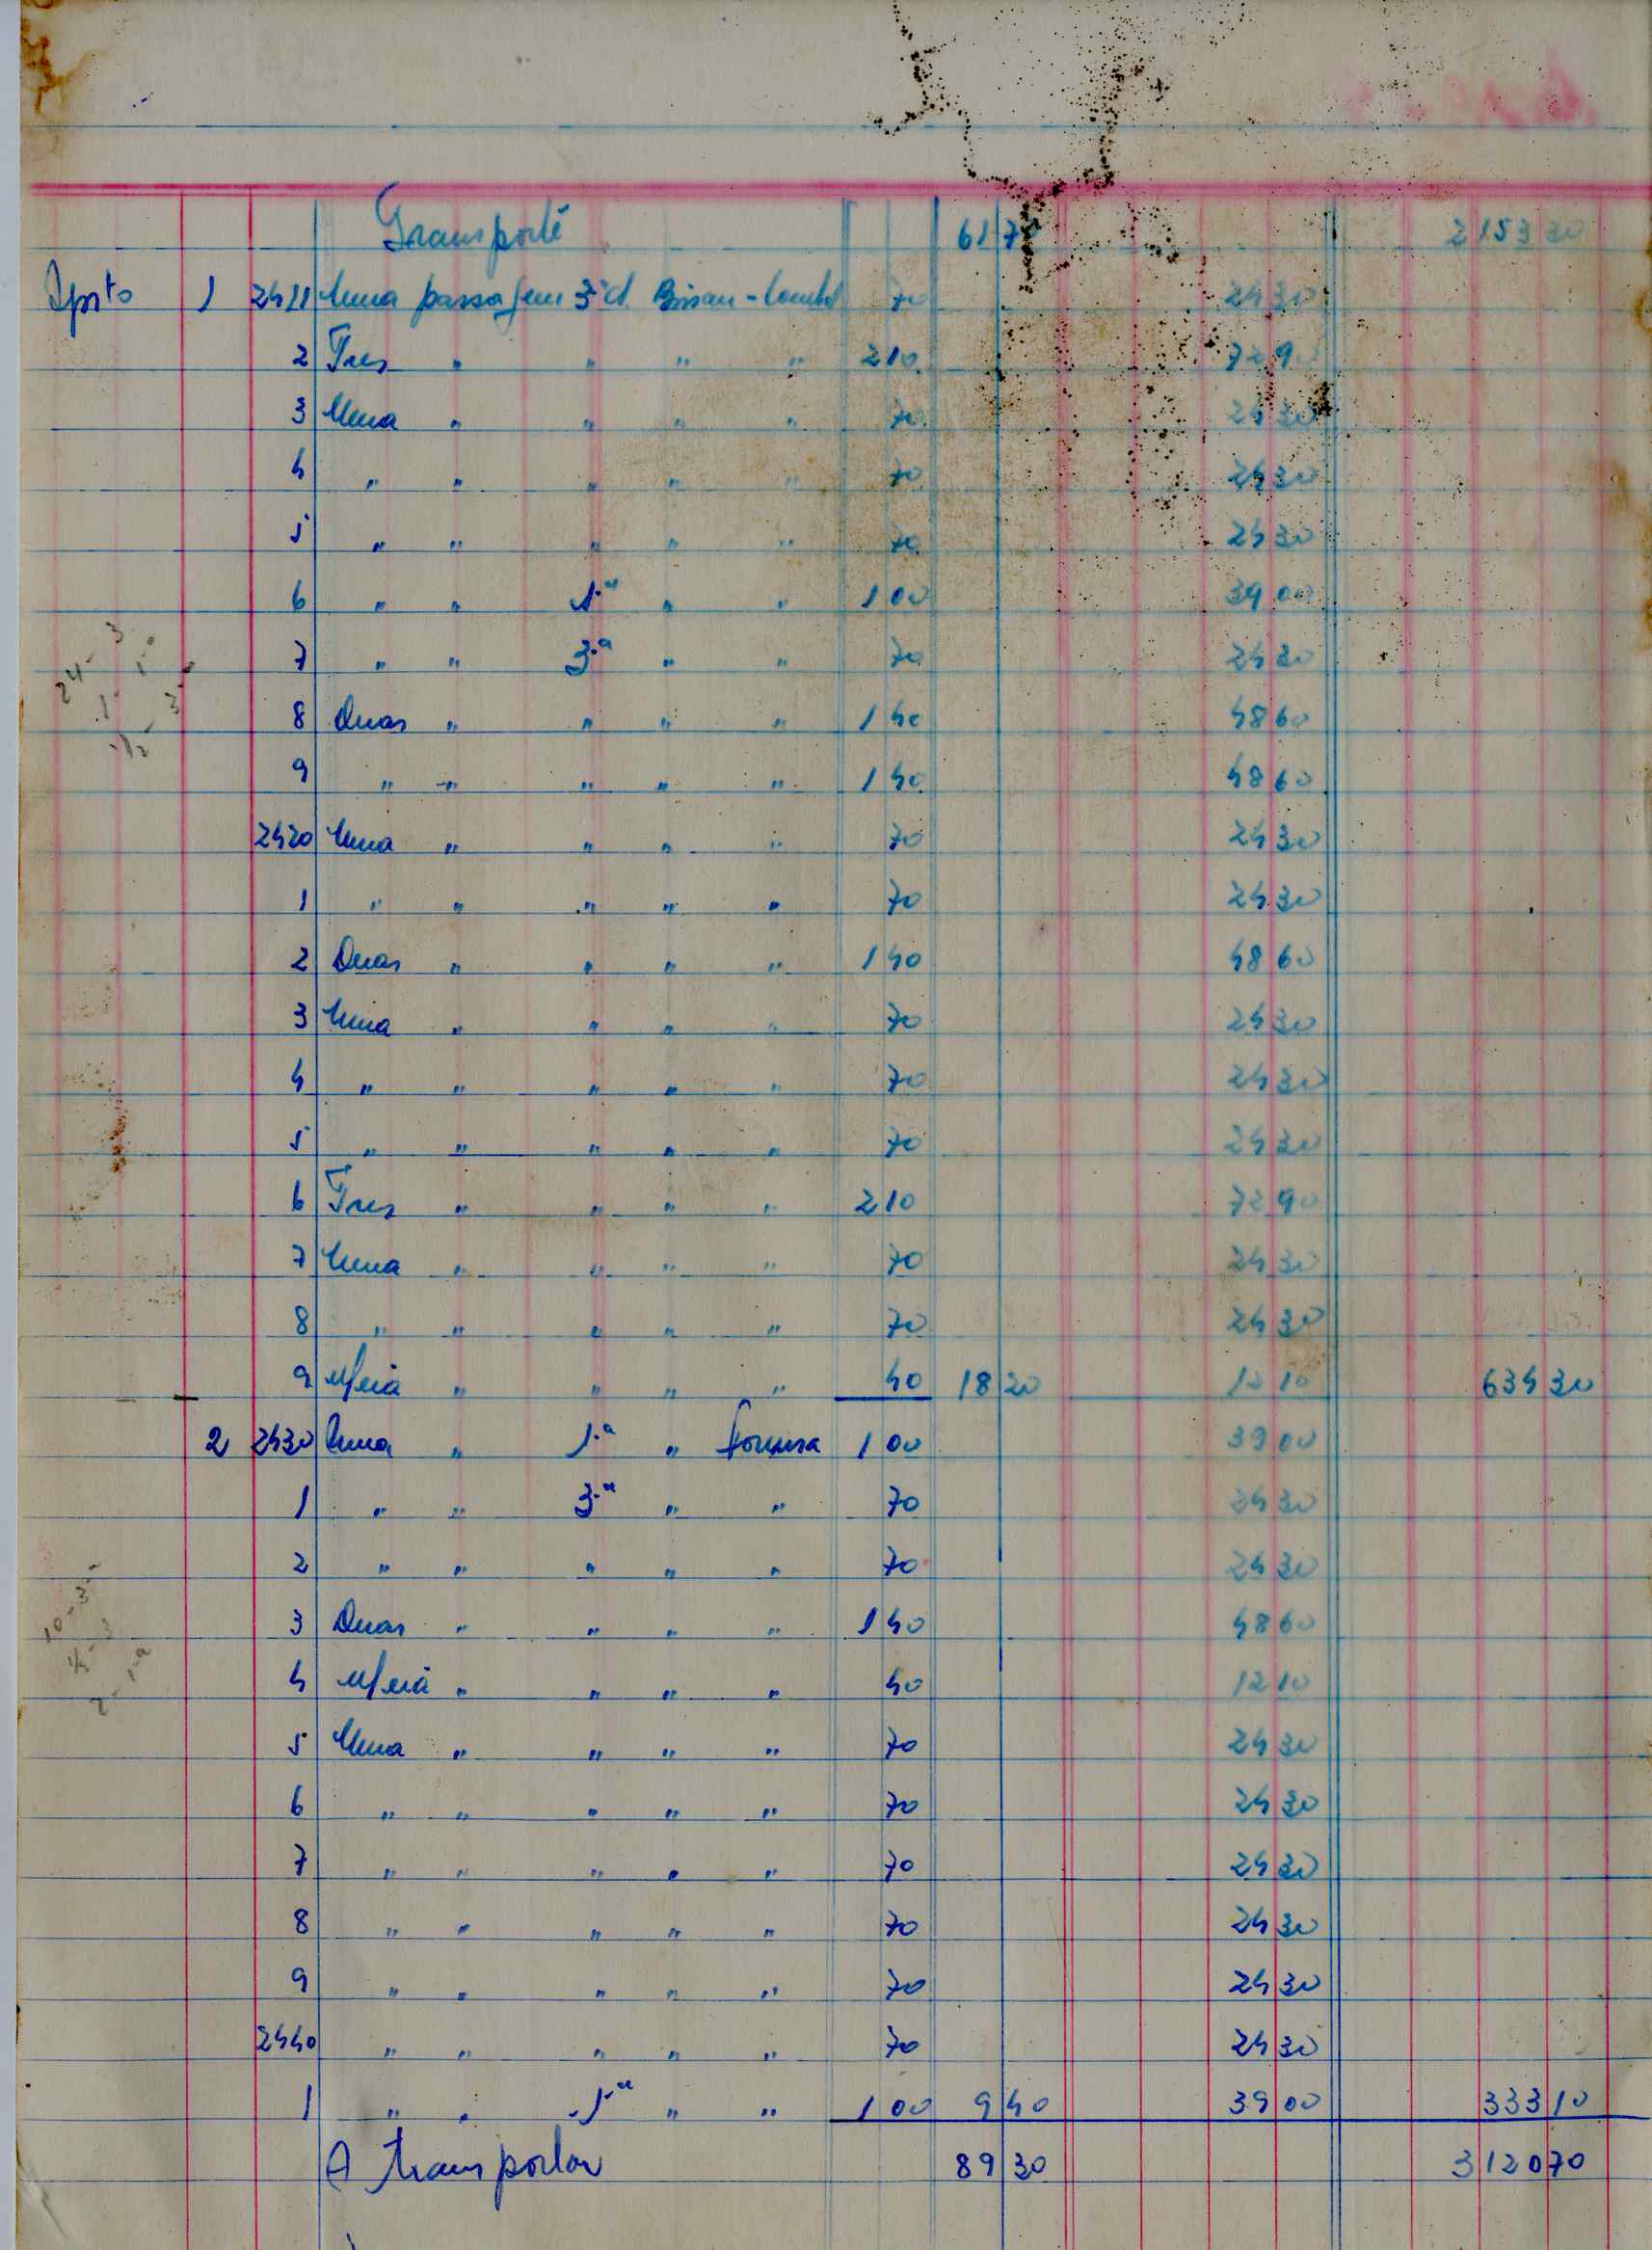 Transporte 61 70 2 153 30
Agsto 1 2411 Uma passagem 3ª cl. Bissau - 70 24 30
2 Tres " " " " 2 10 72 9
3 Uma " " " " 70 24 30
4 " " " " " 70 24 30
5 " " " " " 70 24 30
6 " " 1.ª " " 1 00 39 00
7 " " 3.ª " " 70 24 30
8 Duas " " " " 1 40 48 60
9 " " " " " 1 40 48 60
2420 Uma " " " " 70 24 30
1 " " " " " 70 24 30
2 Duas " " " " 1 40 48 60
3 Uma " " " " 70 24 30
4 " " " " " 70 24 30
5 " " " " " 70 24 30
6 Tres " " " " 2 10 72 90
7 Uma " " " " 70 24 30
8 " " " " " 70 24 30
9 Meia " " " " 40 18 20 12 10 634 30
2 2430 Uma " 1.ª " 1 00 39 00
1 " " 3.ª " " 70 24 30
2 " " " " " 70 24 30
3 Duas " " " " 1 40 48 60
4 Meia " " " " 40 12 10
5 Uma " " " " 70 24 30
6 " " " " " 70 24 30
7 " " " " " 70 24 30
8 " " " " " 70 24 30
9 " " " " " 70 24 30
2440 " " " " " 70 24 30
1 " " 1.ª " " 1 00 9 40 39 00 333 10
A transportar 89 30 3 120 70